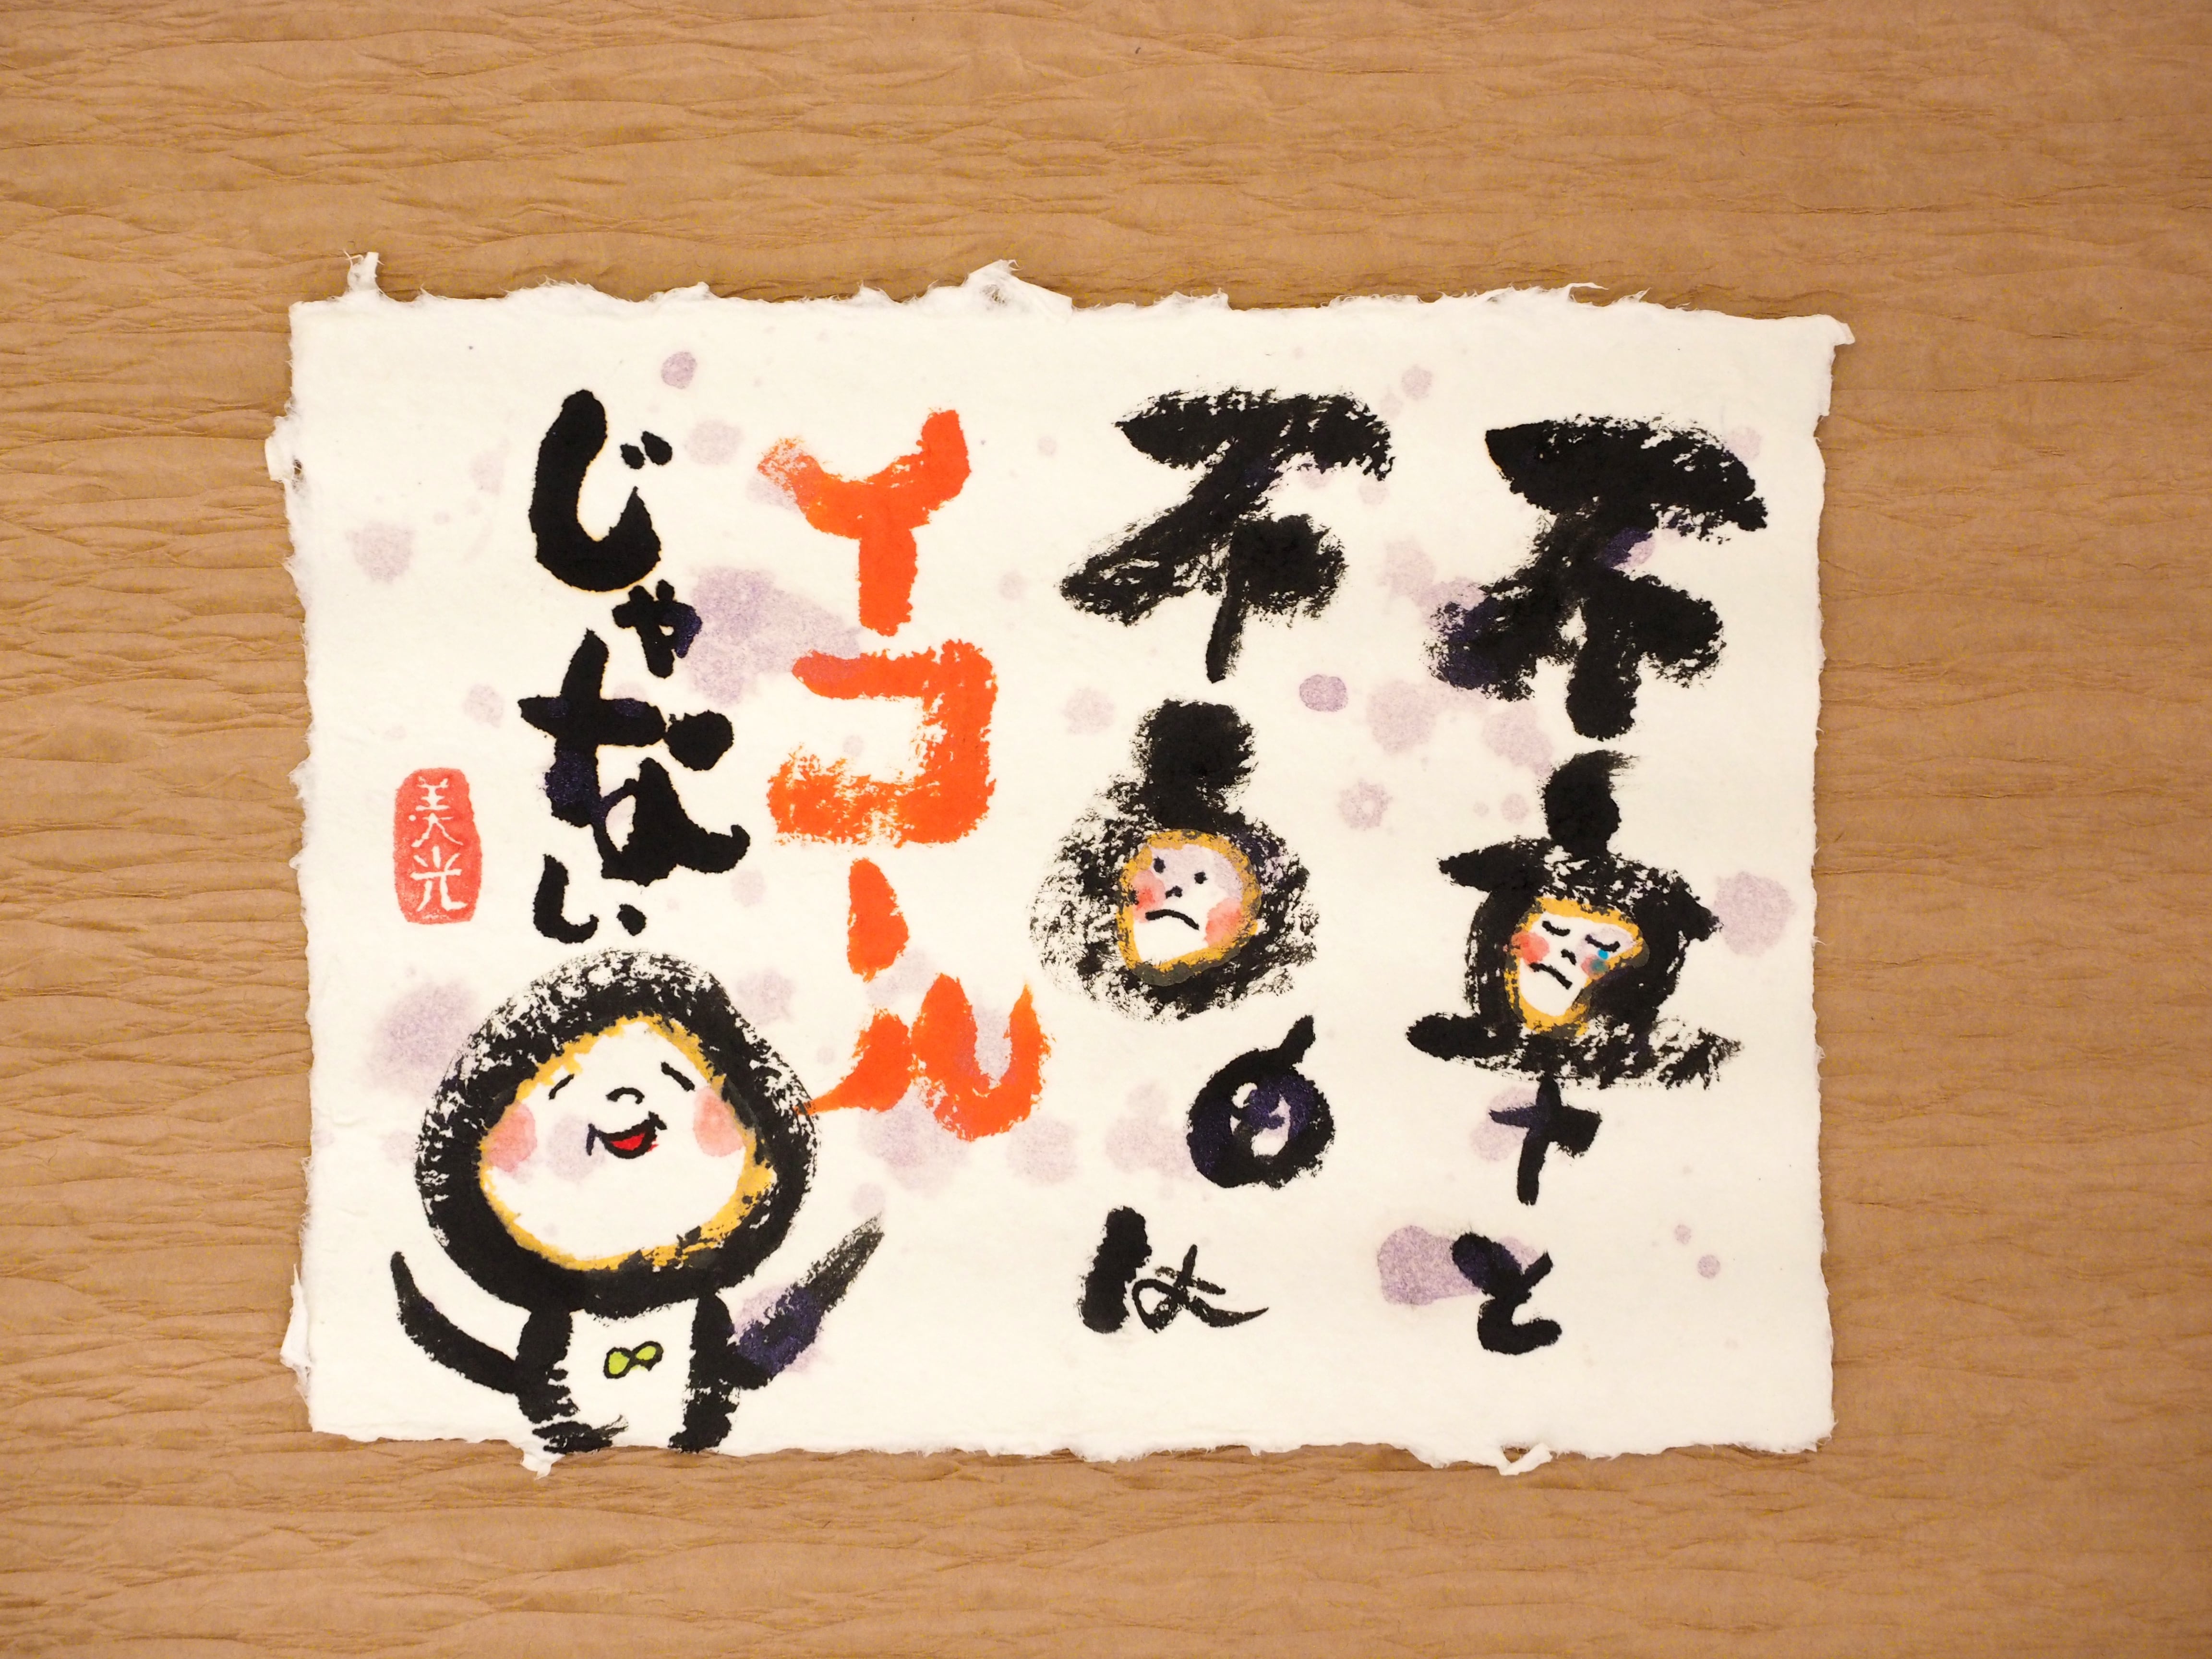 不幸と
不自由は
イコール
じゃない
美光